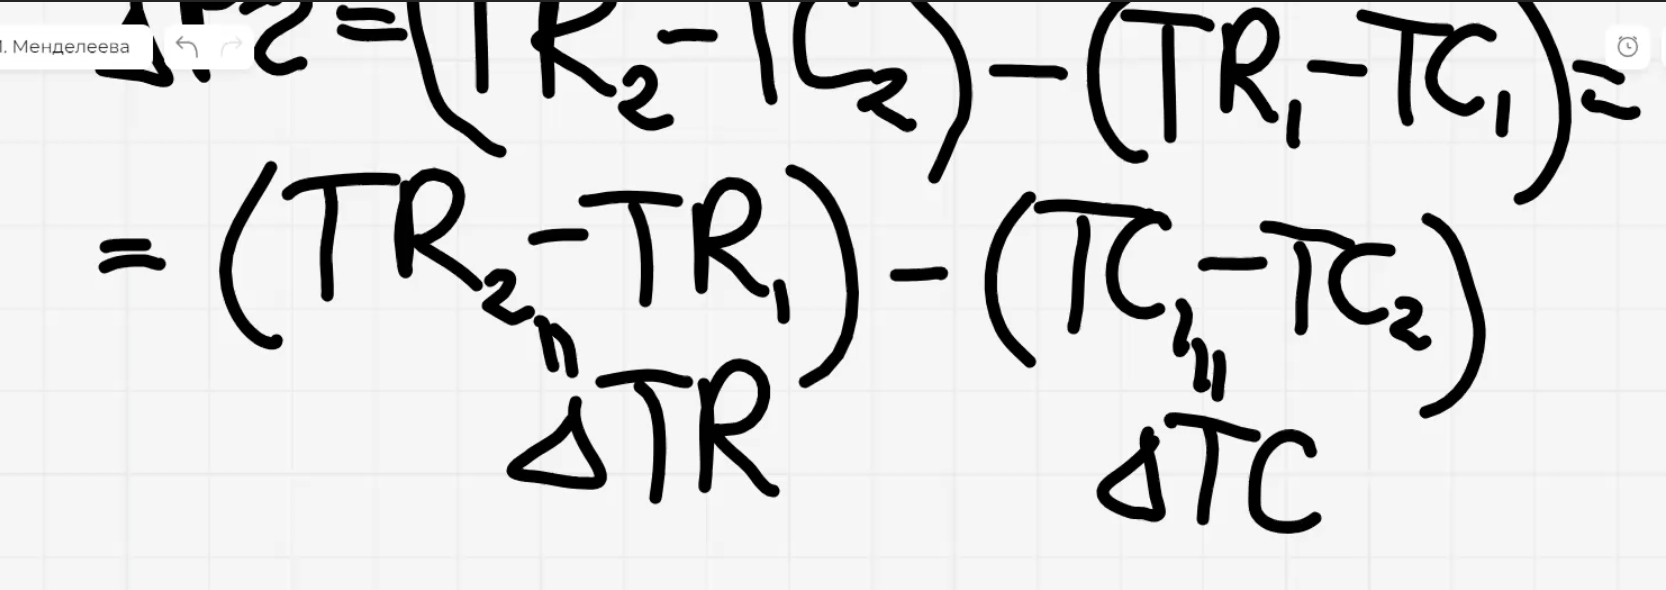 І. Менделеева
= (TR₂ - TC₂) - (TR₁ - TC₁) =
= (TR₂ - TR₁) - (TC₁ - TC₂)
ΔTR ΔTC